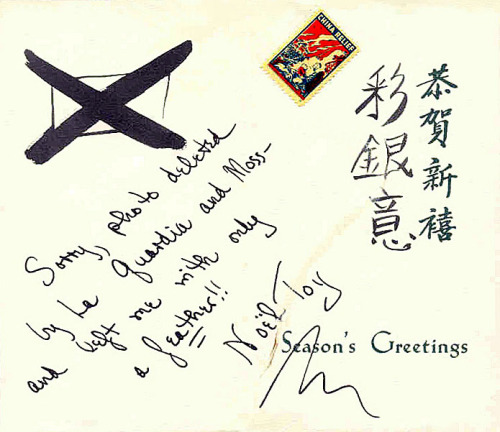 CHINA RELIEF
恭賀新禧
彩銀意
Sorry, photo deleted
by La Guardia and Moss-
and left me with only
a feather!!
Noël Toy
Season's Greetings